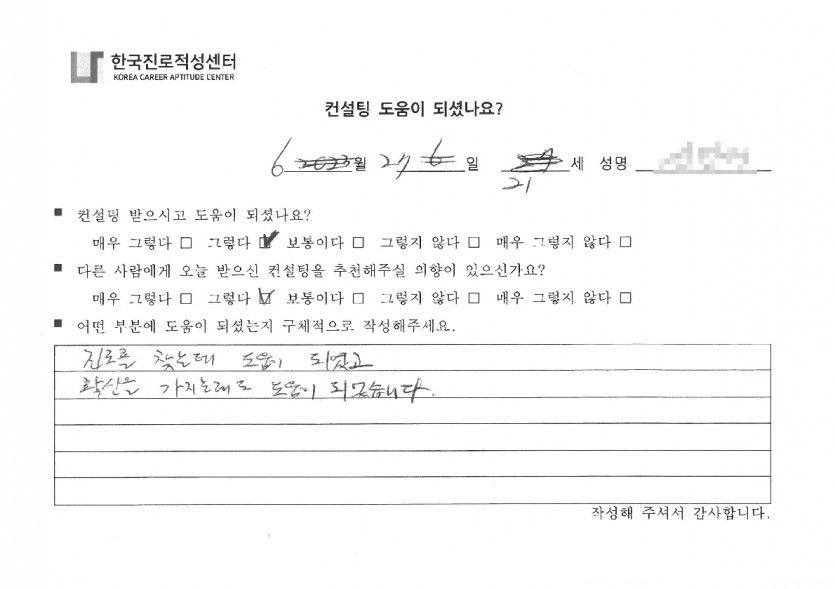 한국진로적성센터
KOREA CAREER APTITUDE CENTER
컨설팅 도움이 되셨나요?
6 월 27 일 21 세 성명
■ 컨설팅 받으시고 도움이 되셨나요?
매우 그렇다 □ 그렇다 ☑ 보통이다 □ 그렇지 않다 □ 매우 그렇지 않다 □
■ 다른 사람에게 오늘 받으신 컨설팅을 추천해주실 의향이 있으신가요?
매우 그렇다 □ 그렇다 ☑ 보통이다 □ 그렇지 않다 □ 매우 그렇지 않다 □
■ 어떤 부분에 도움이 되셨는지 구체적으로 작성해주세요.
진로를 찾는데 도움이 되었고
확신을 가지는데도 도움이 되었습니다.
작성해 주셔서 감사합니다.